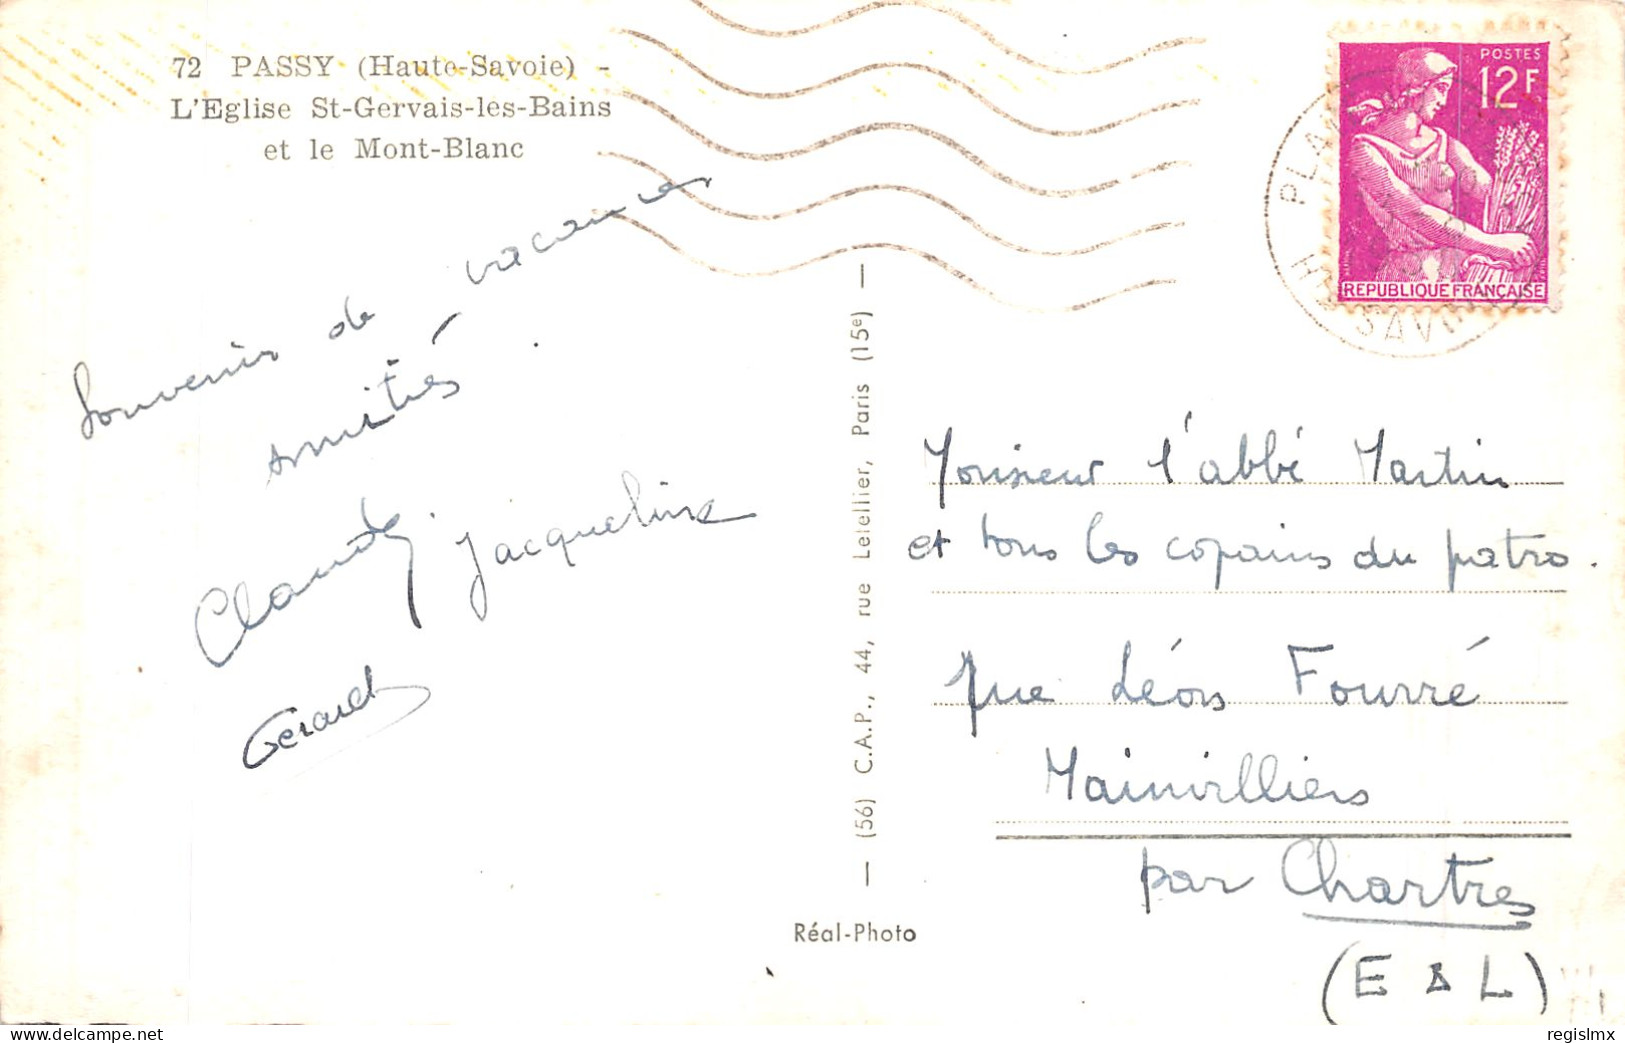 72 PASSY (Haute-Savoie) -
L'Eglise St-Gervais-les-Bains
et le Mont-Blanc
POSTES
12F
REPUBLIQUE FRANÇAISE
H SAVOIE
Souvenirs de vacances
amitiés
Claude
Jacqueline
Gérard
— (56) C.A.P., 44, rue Letellier, Paris (15e) —
Réal-Photo
Monsieur l'abbé Martin
et tous les copains du patro.
rue Léon Fourré
Mainvilliers
par Chartres
(E & L)
regislmx